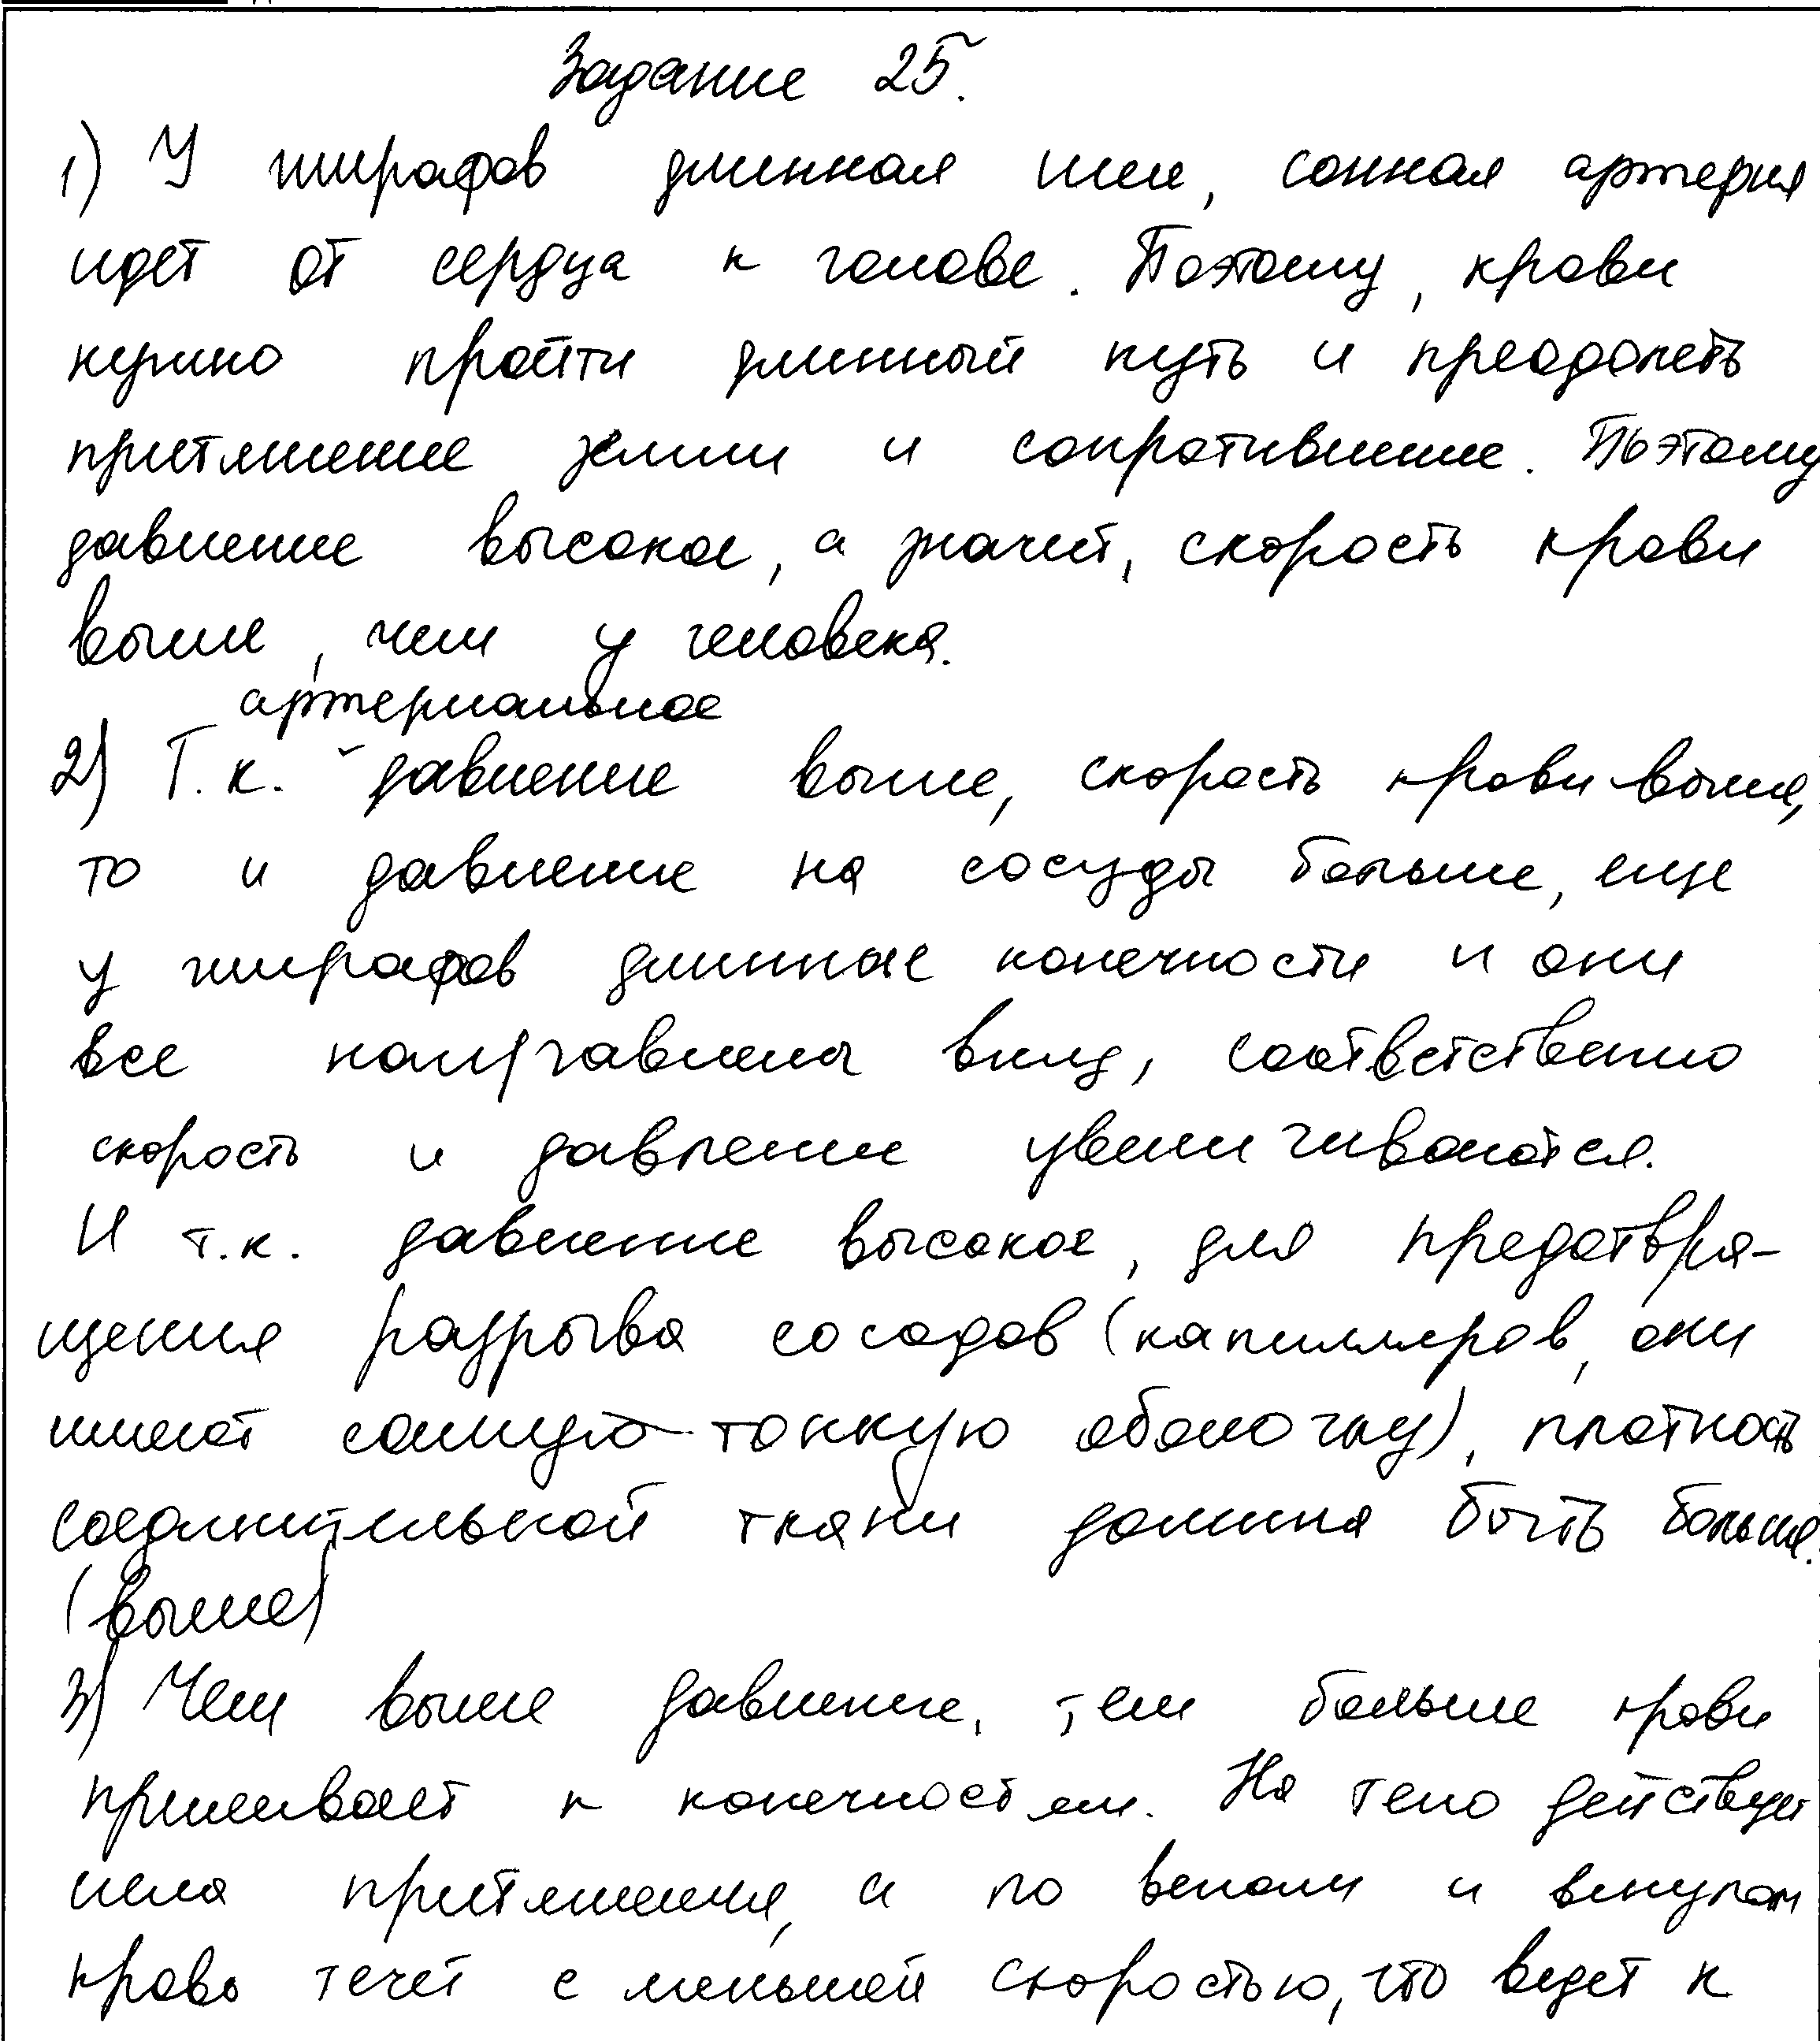 Задание 25.
1) У жирафов длинная шея, сонная артерия
идет от сердца к голове. Поэтому, крови
нужно пройти длинный путь и преодолеть
притяжение земли и сопротивление. Поэтому
давление высокое, а значит, скорость крови
выше, чем у человека.
артериальное
2) Т.к. ˇ давление выше, скорость крови выше,
то и давление на сосуды больше, еще
у жирафов длинные конечности и они
все направлены вниз, соответственно
скорость и давление увеличиваются.
И т.к. давление высокое, для предотвра-
щения разрыва сосудов (капилляров, они
имеют самую тонкую оболочку), плотность
соединительной ткани должна быть больше.
(выше)
3) Чем выше давление, тем больше крови
приливает к конечностям. На тело действует
сила притяжения, и по венам и венулам
кровь течет с меньшей скоростью, что ведет к